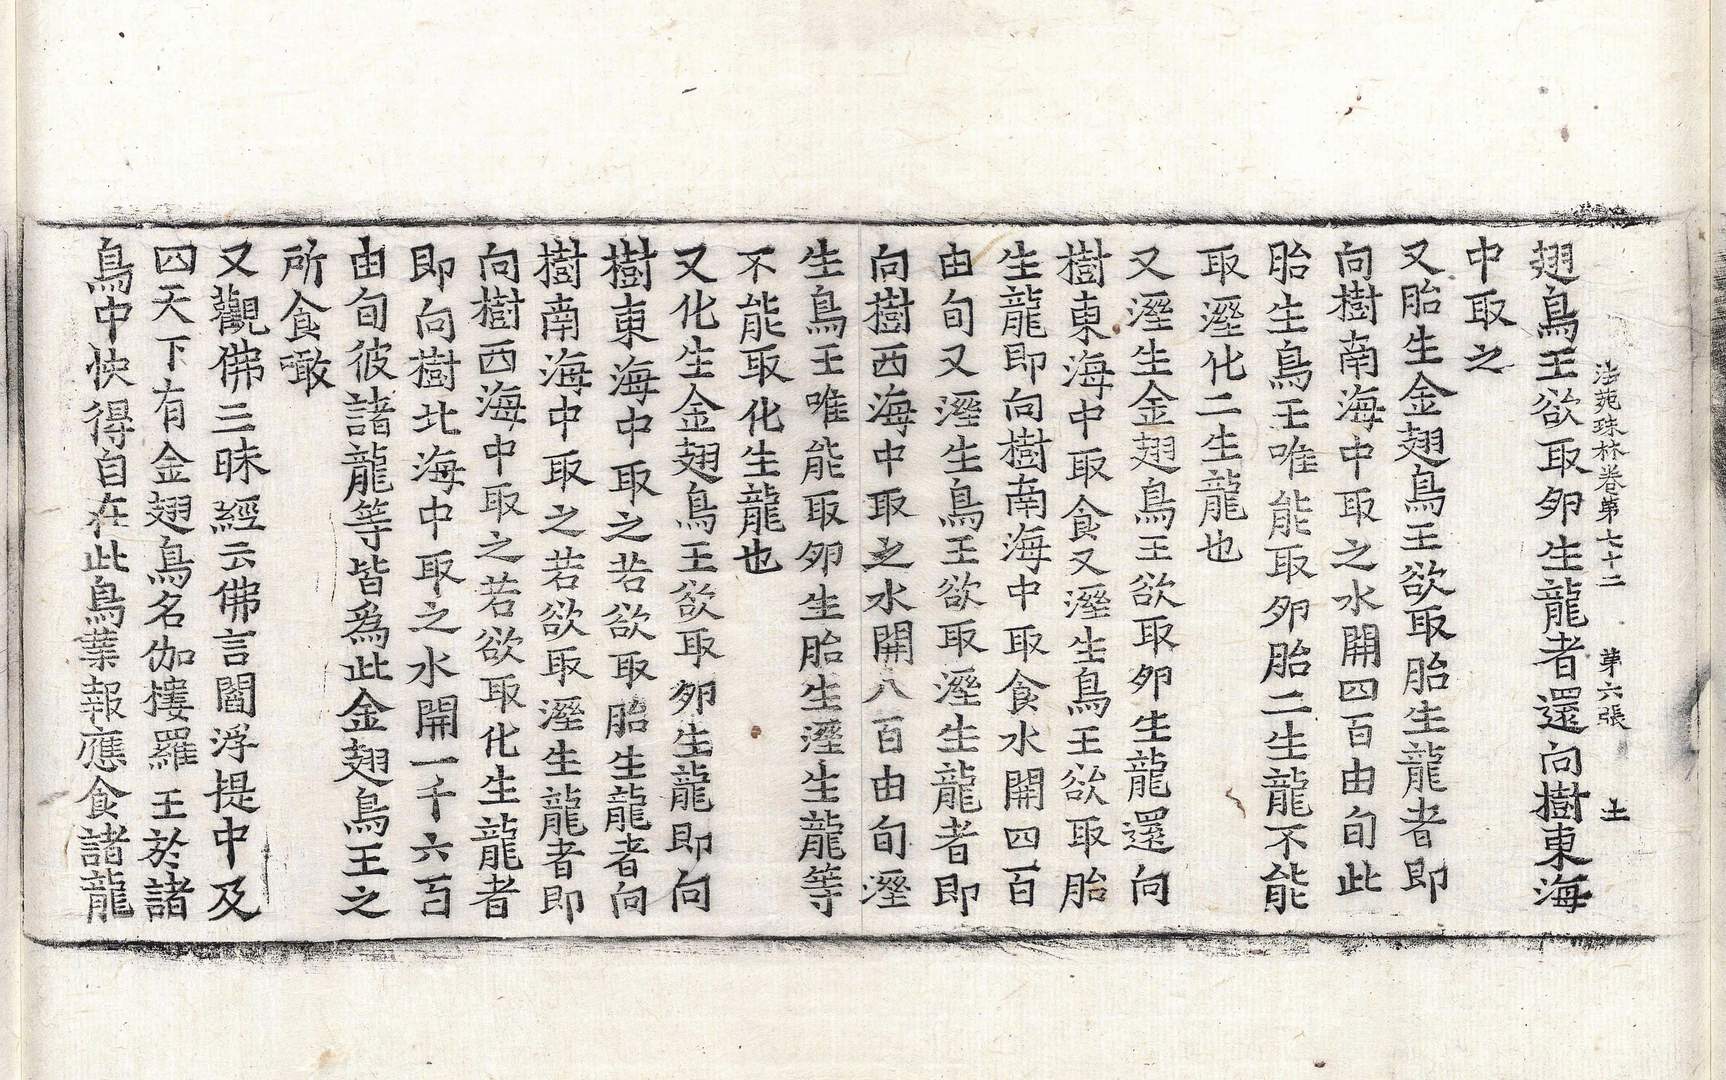 法苑珠林卷第七十二　第六張　土
翅鳥王欲取卵生龍者還向樹東海
中取之
又胎生金翅鳥王欲取胎生龍者即
向樹南海中取之水開四百由旬此
胎生鳥王唯能取卵胎二生龍不能
取溼化二生龍也
又溼生金翅鳥王欲取卵生龍還向
樹東海中取食又溼生鳥王欲取胎
生龍即向樹南海中取食水開四百
由旬又溼生鳥王欲取溼生龍者即
向樹西海中取之水開八百由旬溼
生鳥王唯能取卵生胎生溼生龍等
不能取化生龍也
又化生金翅鳥王欲取卵生龍即向
樹東海中取之若欲取胎生龍者向
樹南海中取之若欲取溼生龍者即
向樹西海中取之若欲取化生龍者
即向樹北海中取之水開一千六百
由旬彼諸龍等皆爲此金翅鳥王之
所食噉
又觀佛三昧經云佛言閻浮提中及
四天下有金翅鳥名伽樓羅王於諸
鳥中快得自在此鳥業報應食諸龍